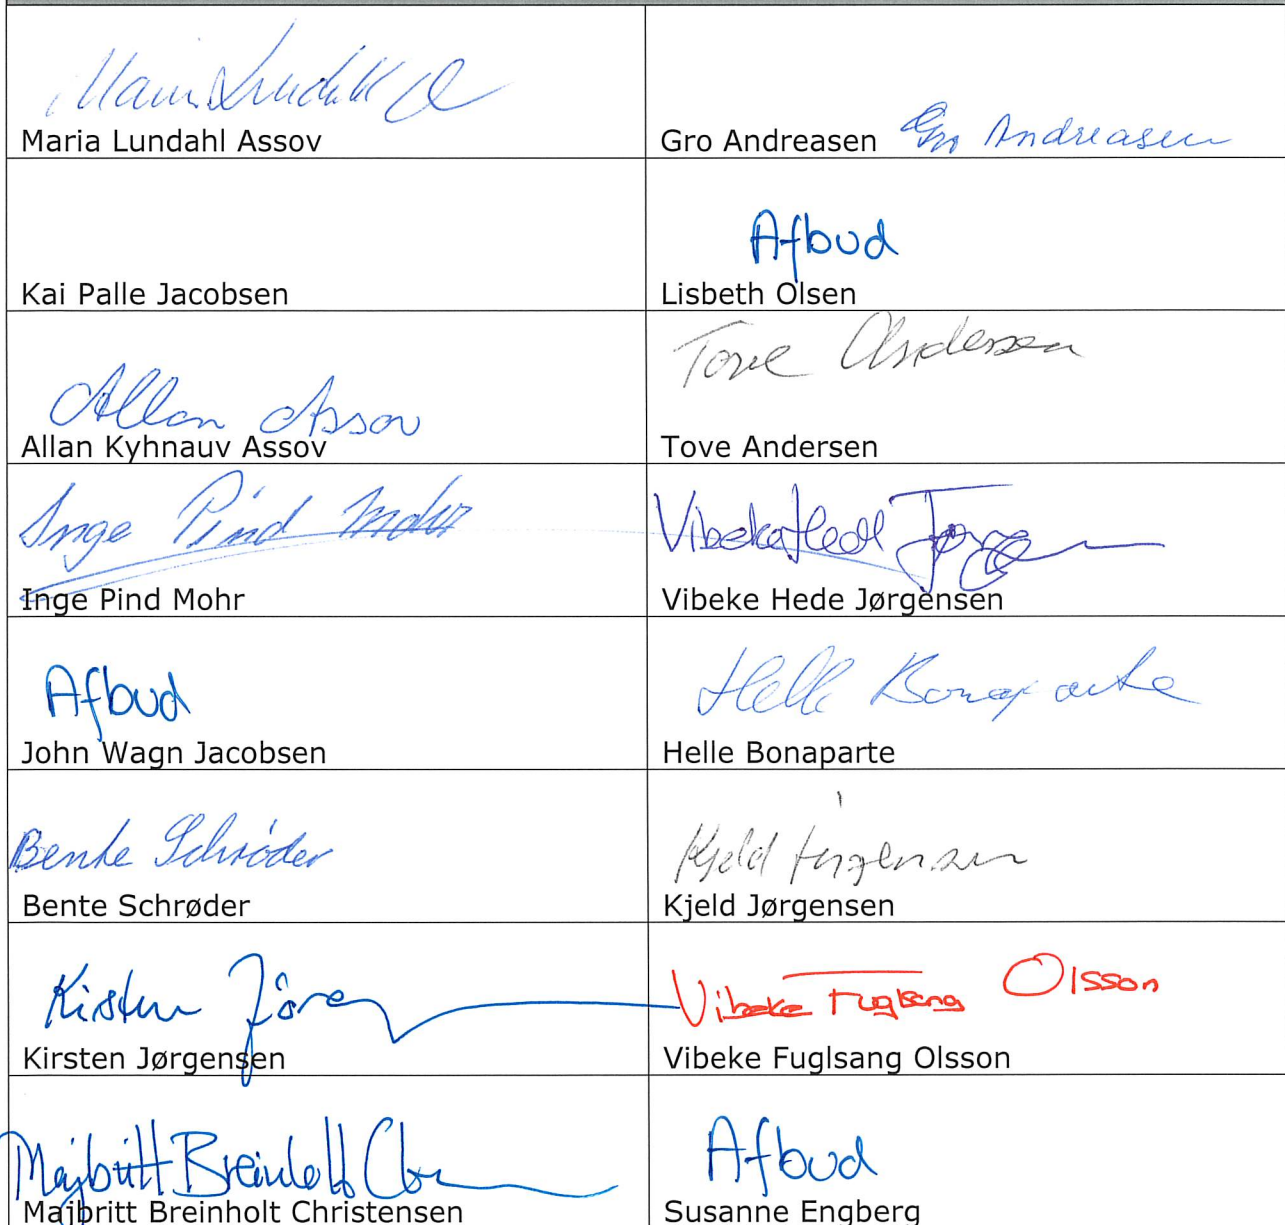 Maria Lundahl
Maria Lundahl Assov
Gro Andreasen Gro Andreasen
Kai Palle Jacobsen
Afbud
Lisbeth Olsen
Allan Assov
Allan Kyhnauv Assov
Tove Andersen
Tove Andersen
Inge Pind Mohr
Inge Pind Mohr
Vibeke Hede Jørgen
Vibeke Hede Jørgensen
Afbud
John Wagn Jacobsen
Helle Bonaparte
Helle Bonaparte
Bente Schrøder
Bente Schrøder
Kjeld Jørgensen
Kjeld Jørgensen
Kirsten Jørg
Kirsten Jørgensen
Vibeke Fuglsang Olsson
Vibeke Fuglsang Olsson
Majbritt Breinholt
Majbritt Breinholt Christensen
Afbud
Susanne Engberg